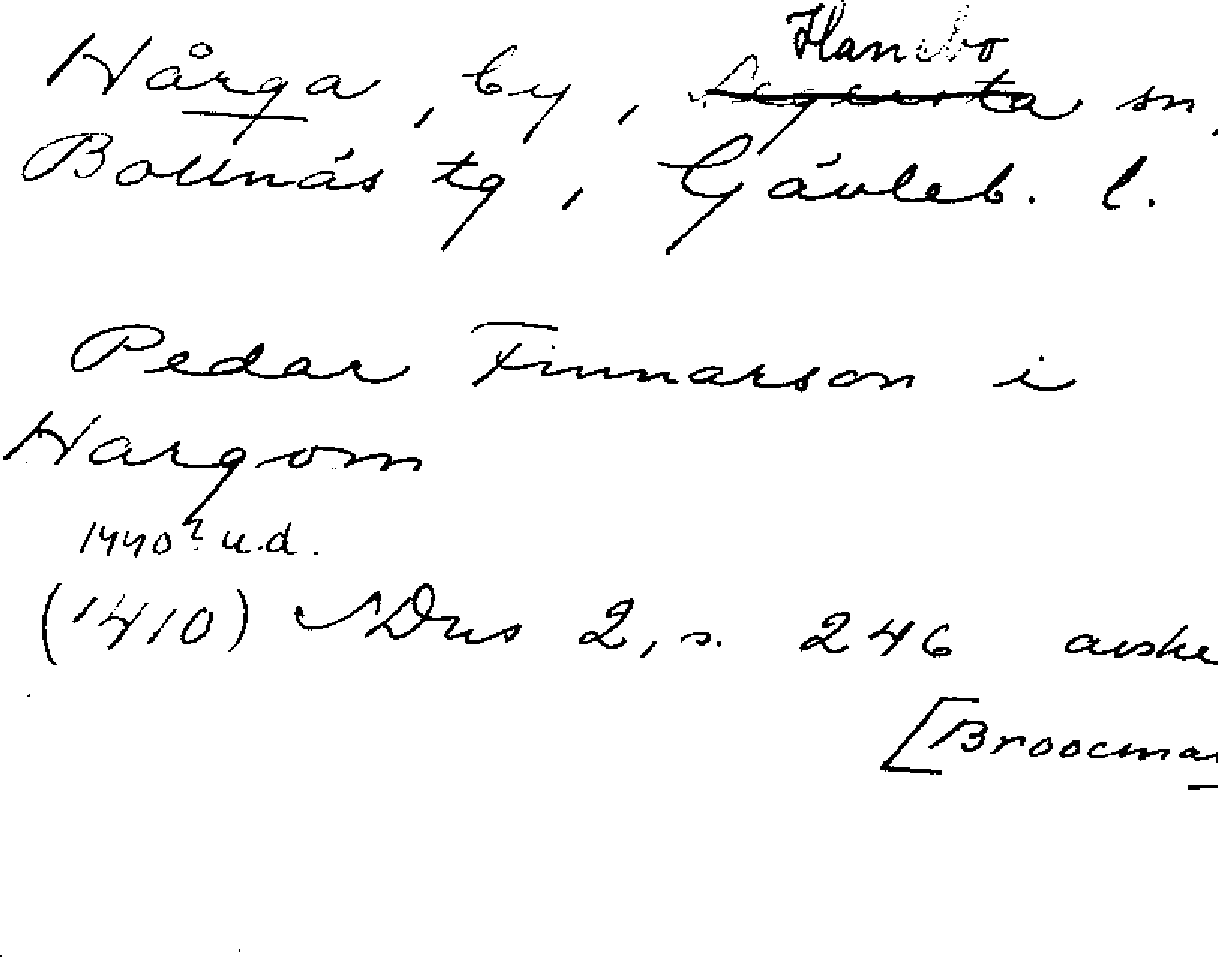 Hanebo
Hårga, by, Segersta sn,
Bollnäs tg, Gävleb. l.
Pedar Finnarson i
Hargom
1440? u.d.
(1410) NDns 2, s. 246 avskr
[Broocman